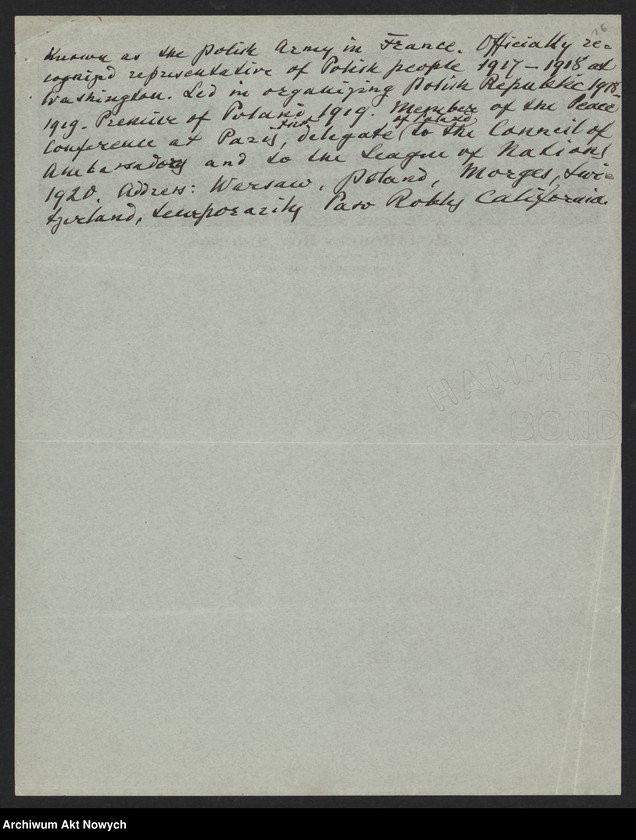 16
Known as the Polish Army in France. Officially re-
cognized representative of Polish people 1917–1918 at
Washington. Led in organizing Polish Republic 1918-
1919. Premier of Poland 1919. Member of the Peace
Conference at Paris, First delegate of Poland to the Council of
Ambassadors and to the League of Nations
1920. Address: Warsaw, Poland, Morges, Swi-
tzerland, temporarily Paso Robles California.
HAMMER
BOND
Archiwum Akt Nowych